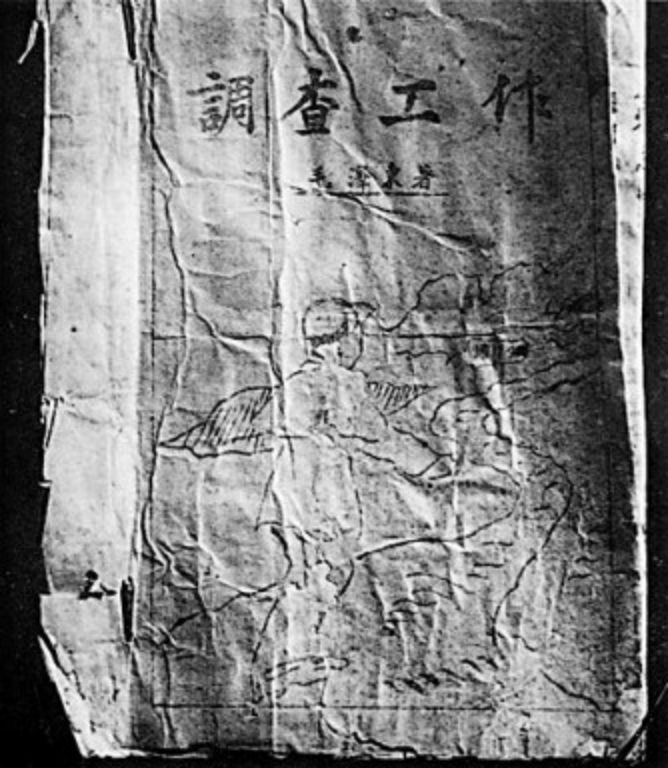 調查工作
毛澤東著
2